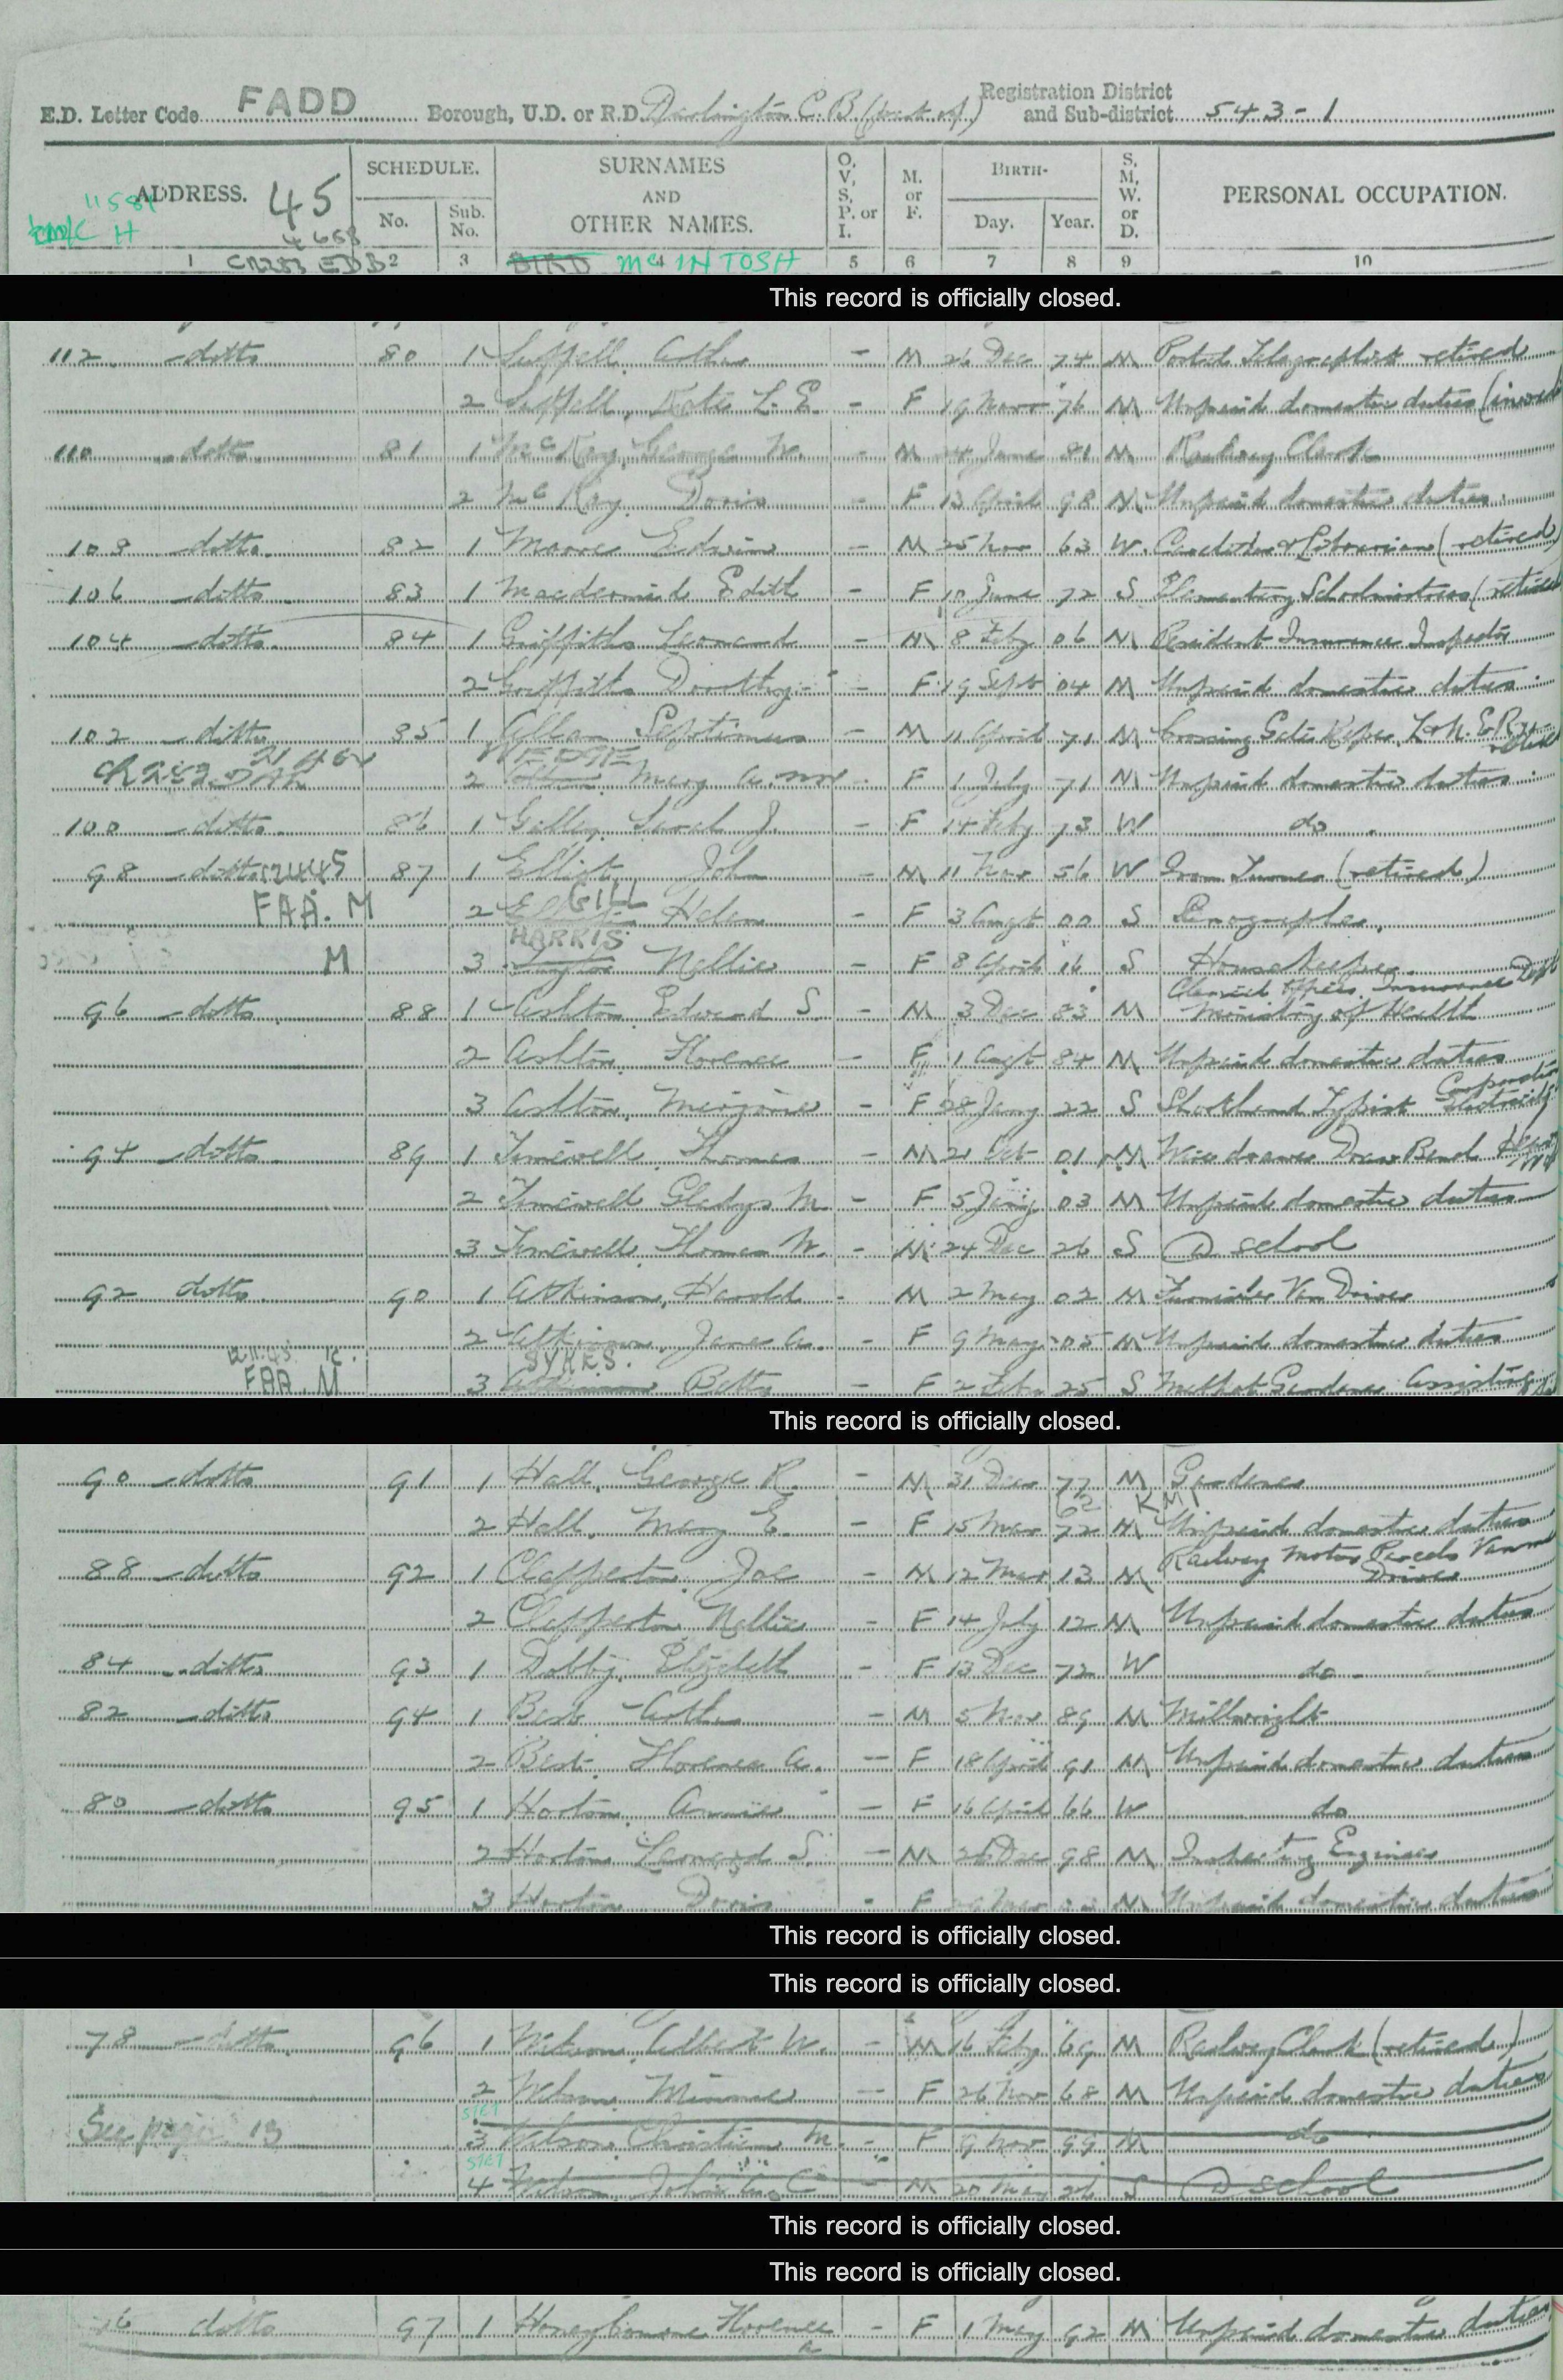 E.D. Letter Code FADD Borough, U.D. or R.D. Darlington C.B. (part of) Registration District and Sub-district 543-1
ADDRESS. 45 SCHEDULE. No. Sub. No. SURNAMES AND OTHER NAMES. O, V, S, P. or I. M. or F. BIRTH- Day. Year. S. M, W. or D. PERSONAL OCCUPATION.
1 CR283 EDB 2 3 McINTOSH 5 6 7 8 9 10
This record is officially closed.
112 ditto 80 1 Arthur - M 26 Dec 74 M Postal Telegraphist retired
2 Kate L. E. - F 19 76 M Unpaid domestic duties
110 ditto 81 1 McKay, George W. - M June 81 M Railway Clerk
2 McKay, Doris - F 13 April 98 M Unpaid domestic duties
108 ditto 82 1 Moore Edwin - M 25 Nov 63 W. Librarian (retired)
106 ditto 83 1 Macdermid Edith - F 10 June 72 S Elementary Schoolmistress (retired
104 ditto 84 1 Griffiths Leonard - M 8 Feby 06 M Resident Insurance Inspector
2 Griffiths Dorothy - F 19 Sept 04 M Unpaid domestic duties
102 ditto 85 1 Septimus - M 11 April 71 M Crossing Gate Keeper L.N.E.Ry retired
2 Mary A. - F 1 July 71 M Unpaid domestic duties
100 ditto 86 1 Sarah J. - F 14 Feby 73 W do
98 ditto 87 1 Elliott, John - M 11 Nov 56 W Iron Turner (retired)
FAA. M 2 GILL Helen - F 3 Augt 00 S
HARRIS
M 3 Nellie - F 8 April 16 S Housekeeper
96 ditto 88 1 Ashton, Edward S. - M 3 Dec 83 M Clerical Officer Insurance Dept Ministry of Health
2 Ashton, Florence - F 1 Augt 84 M Unpaid domestic duties
3 Ashton, Marjorie - F 28 Jany 22 S Shorthand Typist Corporation Electricity
94 ditto 89 1 Timewell, Thomas - M 21 Oct 01 M Wire drawer
2 Timewell Gladys M. - F 5 Jany 03 M Unpaid domestic duties
3 Timewell, Thomas W. - M 24 Dec 26 S @ school
92 ditto 90 1 Atkinson, Harold - M 2 May 02 M Furniture Van Driver
2 Atkinson, Jane A. - F 9 May 05 M Unpaid domestic duties
SYKES.
FAA. M 3 Atkinson Betty - F 2 Feb 25 S Market Gardener Assisting
This record is officially closed.
90 ditto 91 1 Hall, George R. - M 31 Dec 77 M Gardener
2 Hall, Mary E. - F 15 Mar 72 M Unpaid domestic duties
88 ditto 92 1 Clapperton, Joe - M 12 Mar 13 M Railway Motor Parcels Van Driver
2 Clapperton Nellie - F 14 July 12 M Unpaid domestic duties
84 ditto 93 1 Dobby, Elizabeth - F 13 Dec 72 W do
82 ditto 94 1 Best Arthur - M 5 Nov 89 M Millwright
2 Best, Florence A. - F 18 April 91 M Unpaid domestic duties
80 ditto 95 1 Horton, Annie - F 16 April 66 W do
2 Horton Leonard S. - M 26 Dec 98 M Inspecting Engineer
3 Horton Doris - F M Unpaid domestic duties
This record is officially closed.
This record is officially closed.
78 ditto 96 1 Watson, Albert W. - M 16 Feby 69 M Railway Clerk (retired)
2 Watson, Minnie - F 26 Nov 68 M Unpaid domestic duties
See page 13 3 Watson, Christian M. - F 9 Nov 99 M do
4 Watson, John C - M 20 May 26 S @ school
This record is officially closed.
This record is officially closed.
76 ditto 97 1 Honeybourne Florence A - F 1 May 92 M Unpaid domestic duties